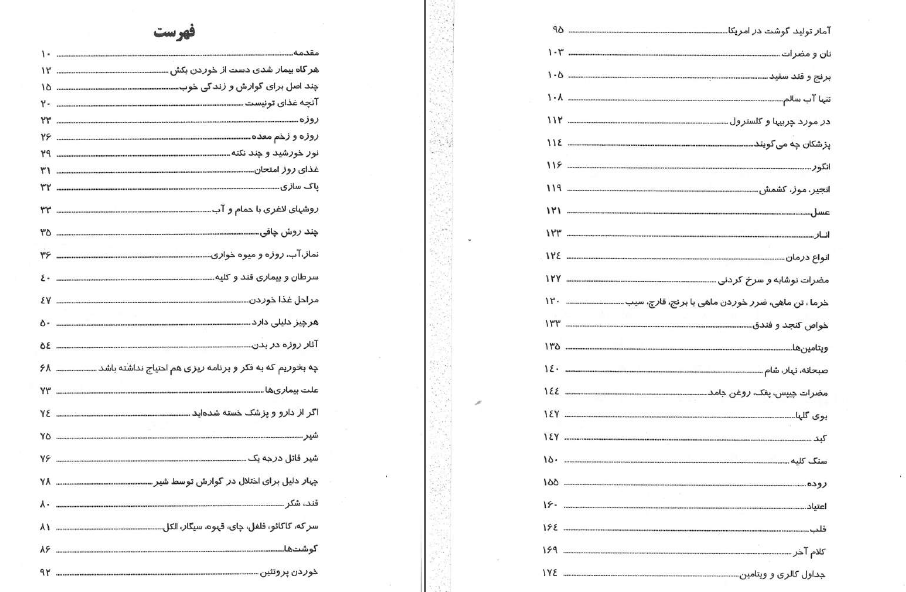 فهرست
مقدمه ۱۰
هرگاه بیمار شدی دست از خوردن بکش ۱۲
چند اصل برای گوارش و زندگی خوب ۱۵
آنچه غذای تو نیست ۲۰
روزه ۲۳
روزه و زخم معده ۲۶
نور خورشید و چند نکته ۲۹
غذای روز امتحان ۳۱
پاک سازی ۳۲
روشهای لاغری با حمام و آب ۳۳
چند روش چاقی ۳۵
نماز، آب، روزه و میوه خواری ۳۶
سرطان و بیماری قند و کلیه ۴۰
مراحل غذا خوردن ۴۷
هرچیز دلیلی دارد ۵۰
آثار روزه در بدن ۵٤
چه بخوریم که به فکر و برنامه ریزی هم احتیاج نداشته باشد ۶۸
علت بیماری‌ها ۷۳
اگر از دارو و پزشک خسته شده‌اید ۷٤
شیر ۷۵
شیر قاتل درجه یک ۷۶
چهار دلیل برای اختلال در گوارش توسط شیر ۷۸
قند، شکر ۸۰
سرکه، کاکائو، فلفل، چای، قهوه، سیگار، الکل ۸۱
گوشت‌ها ۸۶
خوردن پروتئین ۹۲
آمار تولید گوشت در امریکا ۹۵
نان و مضرات ۱۰۳
برنج و قند سفید ۱۰۵
تنها آب سالم ۱۰۸
در مورد چربیها و کلسترول ۱۱۲
پزشکان چه می‌گویند ۱۱٤
انگور ۱۱۶
انجیر، موز، کشمش ۱۱۹
عسل ۱۲۱
انار ۱۲۳
انواع درمان ۱۲٤
مضرات نوشابه و سرخ کردنی ۱۲۷
خرما، تن ماهی، ضرر خوردن ماهی با برنج، قارچ، سیب ۱۳۰
خواص کنجد و فندق ۱۳۳
ویتامین‌ها ۱۳۵
صبحانه، نهار، شام ۱٤۰
مضرات چیپس، پفک، روغن جامد ۱٤٤
بوی گلها ۱٤۷
کبد ۱٤۷
سنگ کلیه ۱۵۰
روده ۱۵۵
اعتیاد ۱۶۰
قلب ۱۶٤
کلام آخر ۱۶۹
جداول کالری و ویتامین ۱۷٤